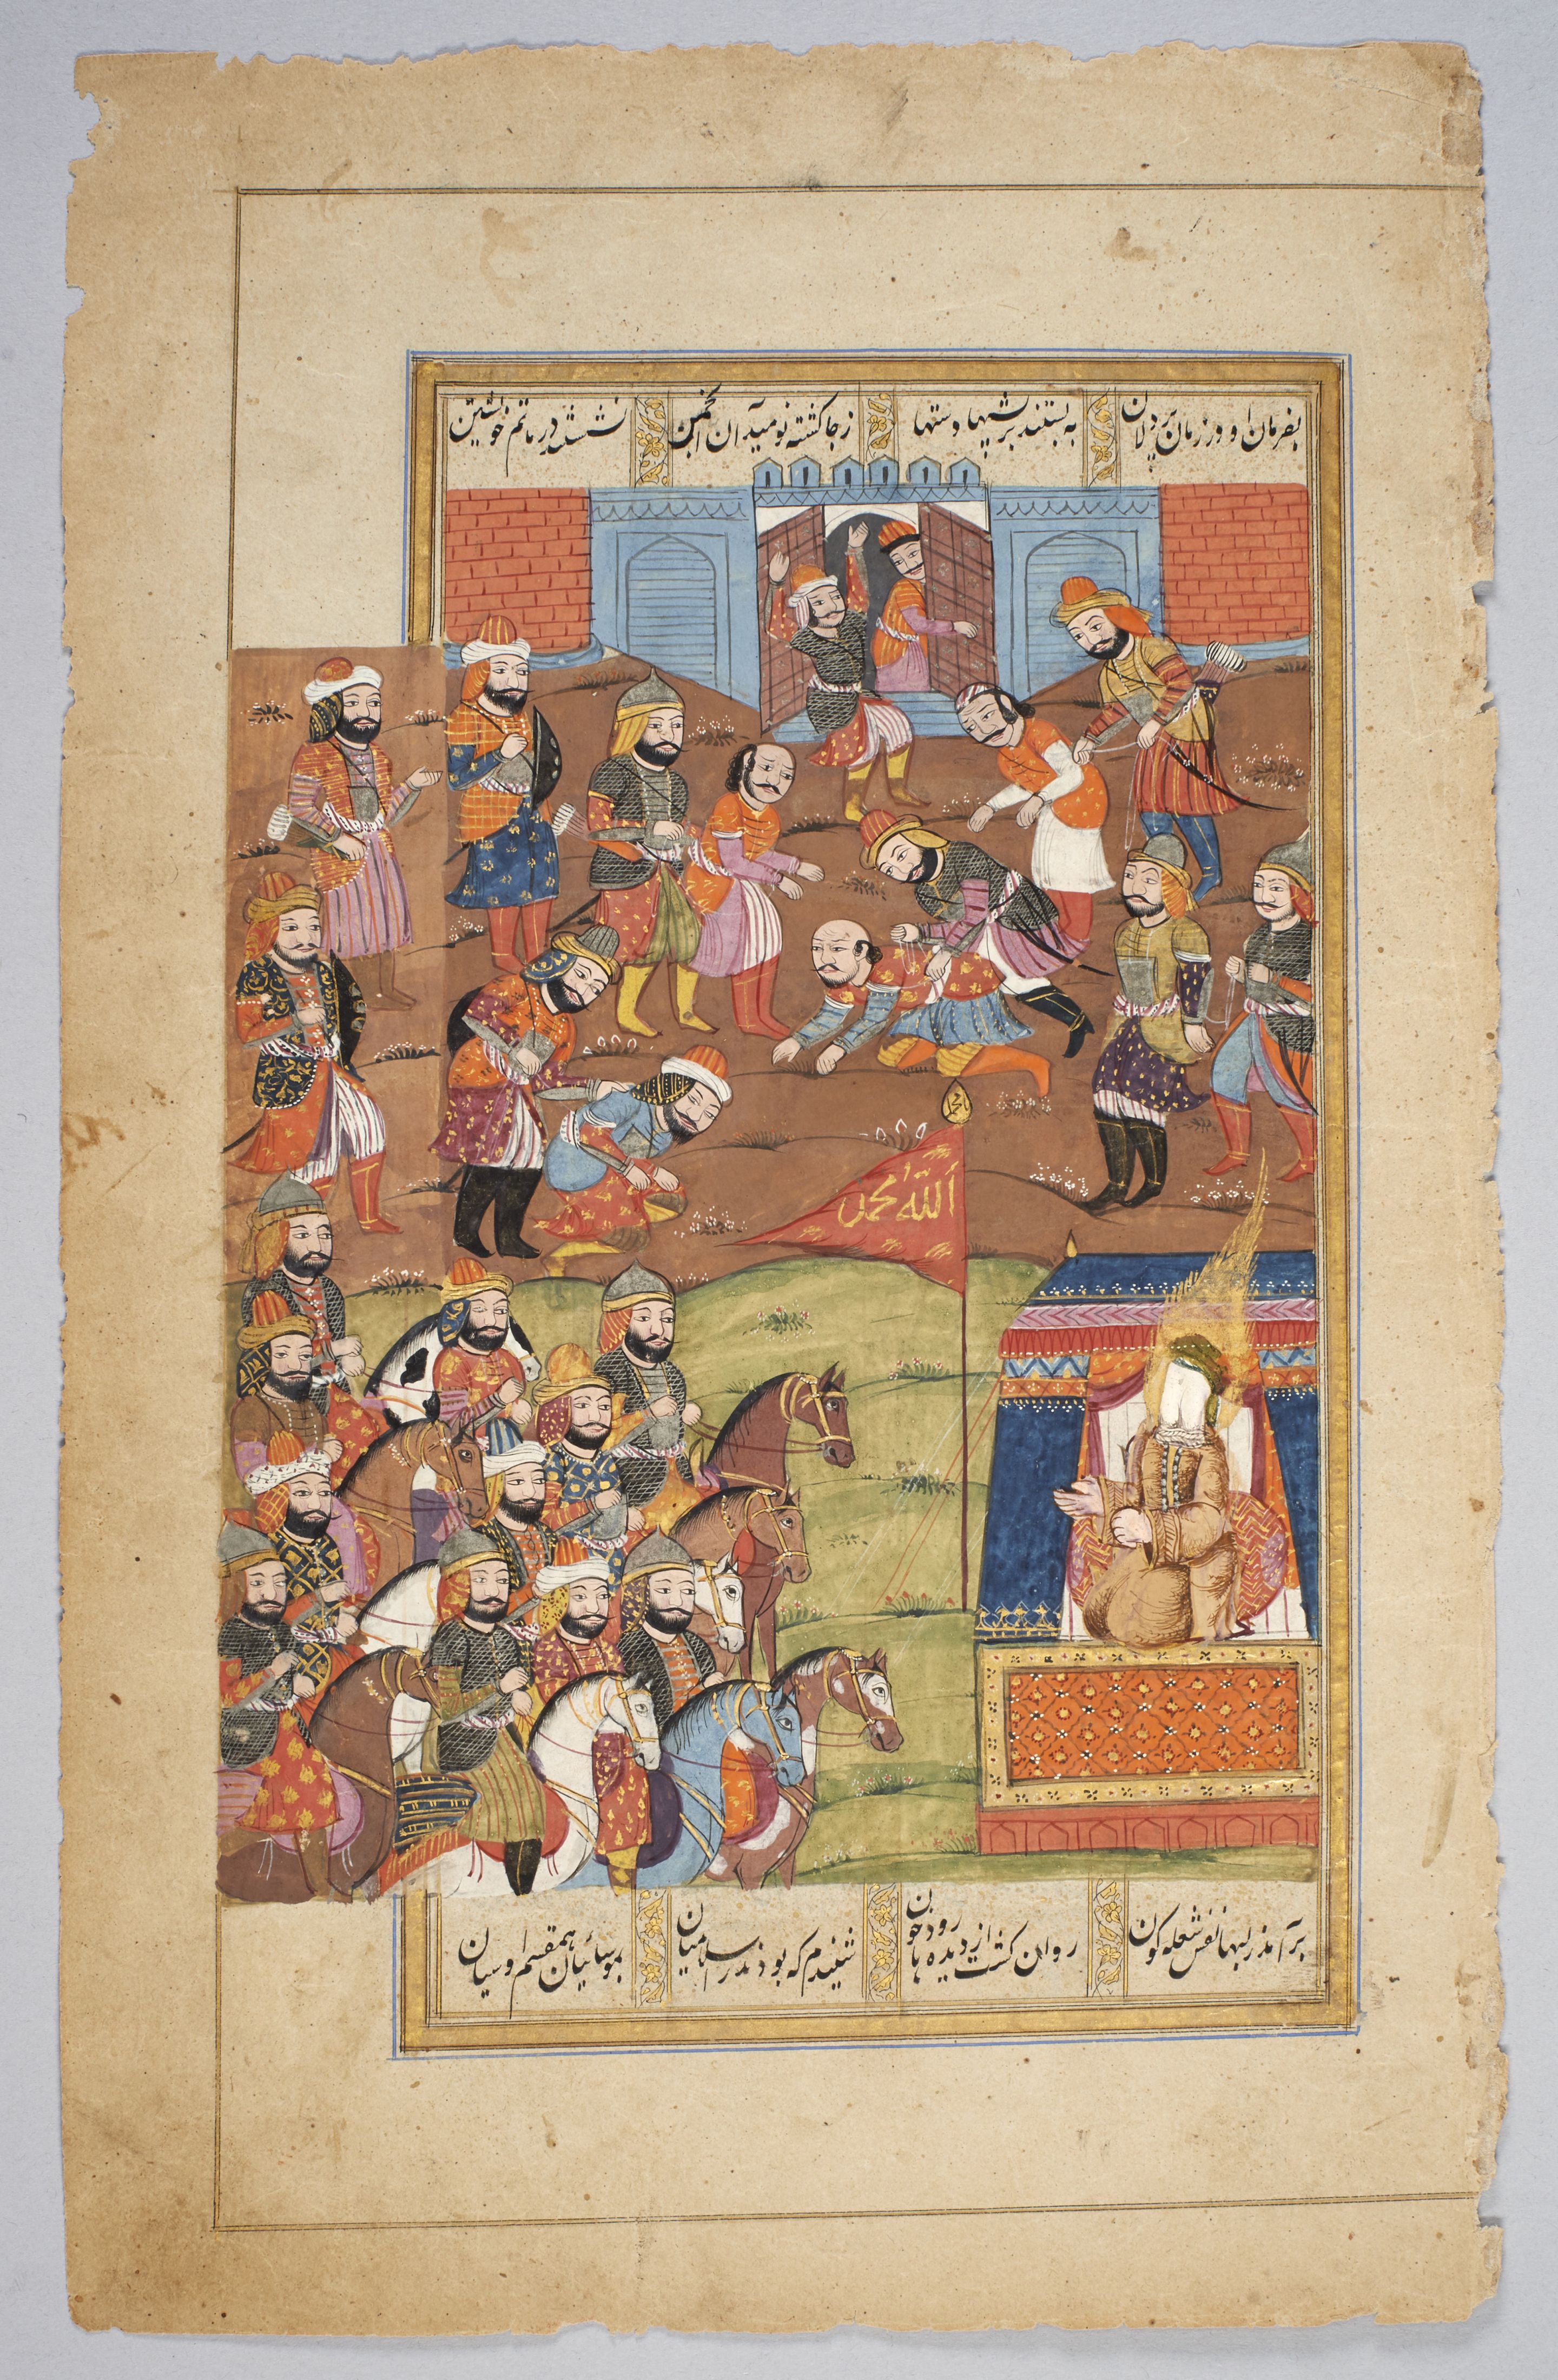 بفرمان او در زمان پردلان به بستند بر پشتها دستها ز جا کشته نومید آن انجمن نشستند در ماتم خویشتن
الله محمد
برآمد ز لبها نفس شعله کون روان کشت از دیده ها رود خون شنیدم که بودند ز اسلامیان بموسائیان همقسم اوسیان